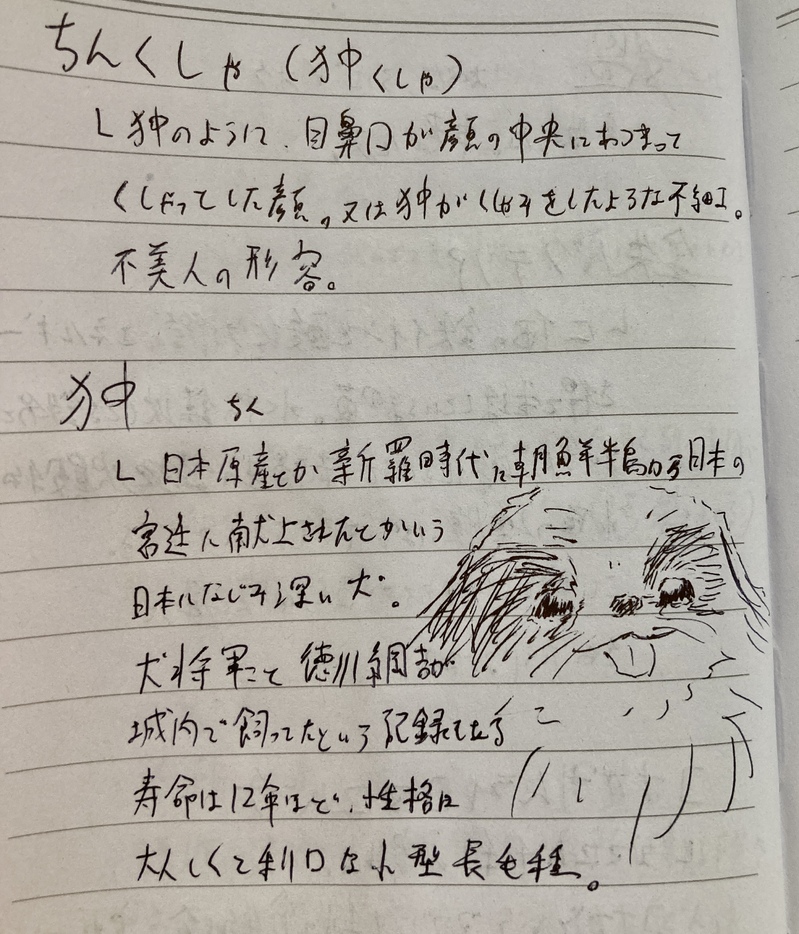 ちんくしゃ（狆くしゃ）
└狆のように、目鼻口が顔の中央にあつまって
くしゃっとした顔。又は狆がくしゃみをしたような不細工。
不美人の形容。
狆 ちん
└日本原産とか新羅時代に朝鮮半島から日本の
宮廷に献上されたとかいう
日本になじみ深い犬。
犬将軍こと徳川綱吉が
城内で飼ってたという記録もある
寿命は12年ほど、性格は
大人しくて利口な小型長毛種。